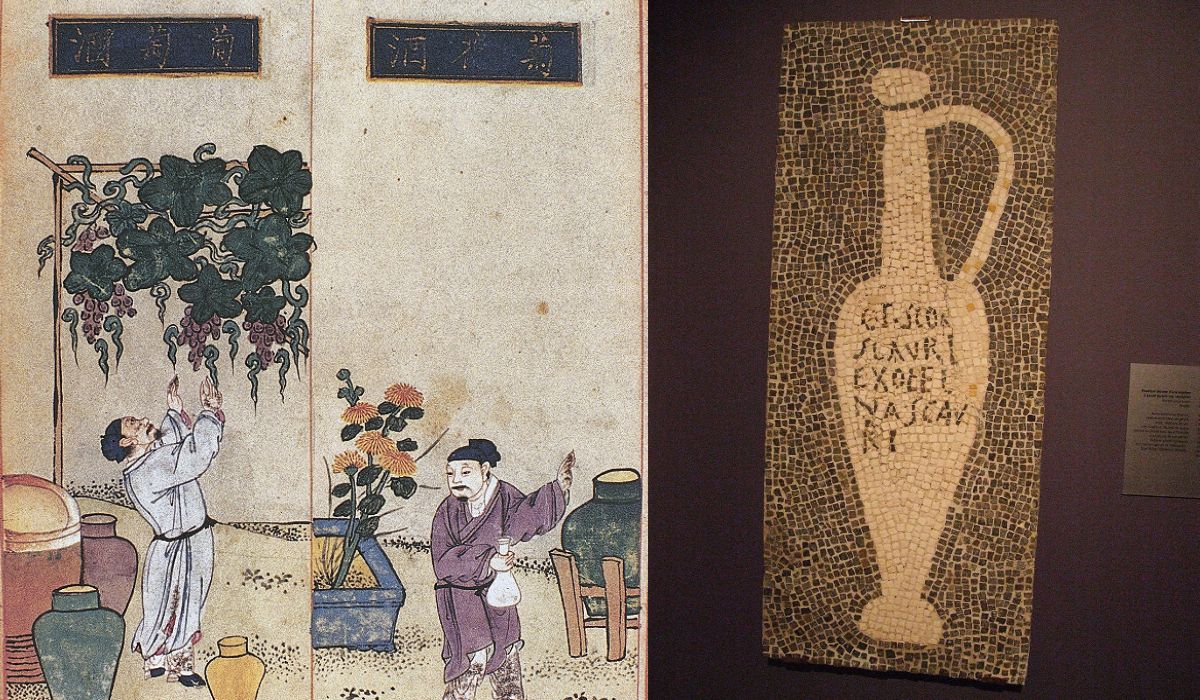 葡萄酒
菊花酒
G F SCOM
SCAVRI
EX OFFI
NA SCAV
RI